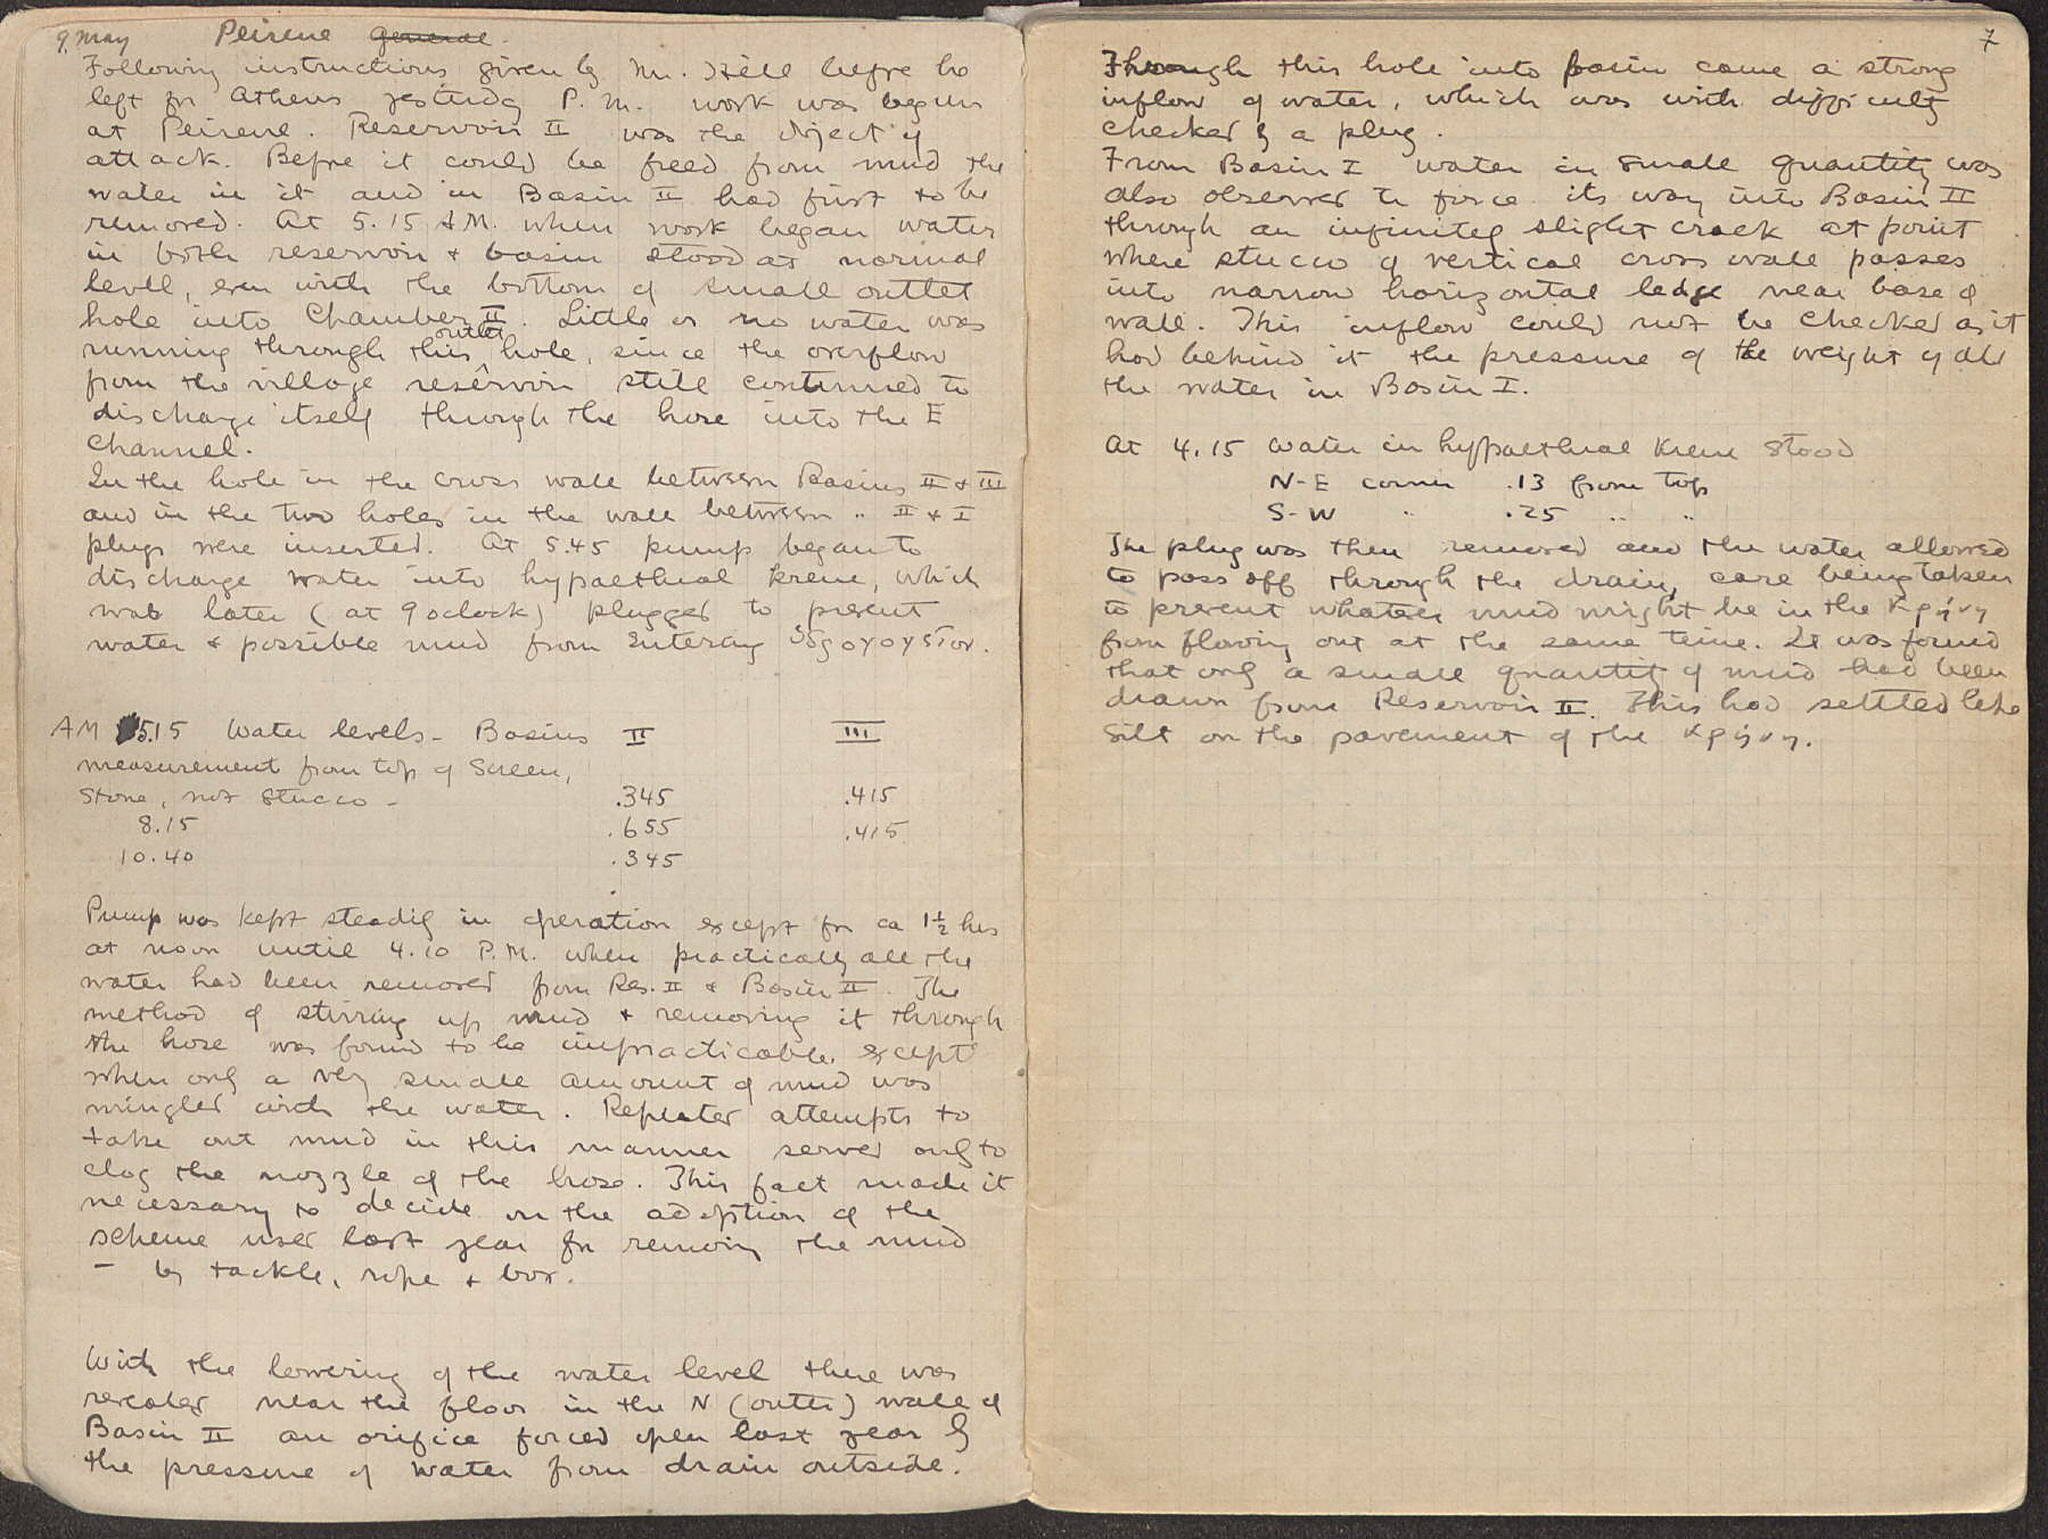 9. May Peirene general.
Following instructions given by Mr. Hill before he
left for Athens yesterday P.M. work was begun
at Peirene. Reservoir II was the object of
attack. Before it could be freed from mud the
water in it and in Basin II had first to be
removed. At 5.15 AM. when work began water
in both reservoir + basin stood at normal
level, even with the bottom of small outlet
hole into Chamber II. Little or no water was
running through this outlet hole, since the overflow
from the village reservoir still continued to
discharge itself through the hose into the E
Channel.
In the hole in the cross wall between Basins II + III
and in the two holes in the wall between " II + I
plugs were inserted. At 5.45 pump began to
discharge water into hypaethral krene, which
was later (at 9 oclock) plugged to prevent
water + possible mud from entering
AM 5.15 Water levels - Basins II III
measurement from top of Screen,
Stone, not Stucco - .345 .415
8.15 .655 .415
10.40 .345
Pump was kept steadily in operation except for ca 1½ hrs
at noon until 4.10 P.M. when practically all the
water had been removed from Res. II + Basin II. The
method of stirring up mud + removing it through
the hose was found to be impracticable except
when only a very small amount of mud was
mingled with the water. Repeated attempts to
take out mud in this manner served only to
clog the nozzle of the hose. This fact made it
necessary to decide on the adoption of the
scheme used last year for removing the mud
- by tackle, rope + box.
With the lowering of the water level there was
revealed near the floor in the N (outer) wall of
Basin II an orifice forced open last year by
the pressure of water from drain outside.
7
Through this hole into basin came a strong
inflow of water, which was with difficulty
checked by a plug.
From Basin I water in small quantity was
also observed to force its way into Basin II
through an infinitely slight crack at point
where stucco of vertical cross wall passes
into narrow horizontal ledge near base of
wall. This inflow could not be checked as it
had behind it the pressure of the weight of all
the water in Basin I.
At 4.15 water in hypaethral krene stood
N-E corner .13 from top
S-W " .25 " "
The plug was then removed and the water allowed
to pass off through the drain, care being taken
to prevent whatever mud might be in the κρήνη
from flowing out at the same time. It was found
that only a small quantity of mud had been
drawn from Reservoir II. This had settled like
silt on the pavement of the κρήνη.